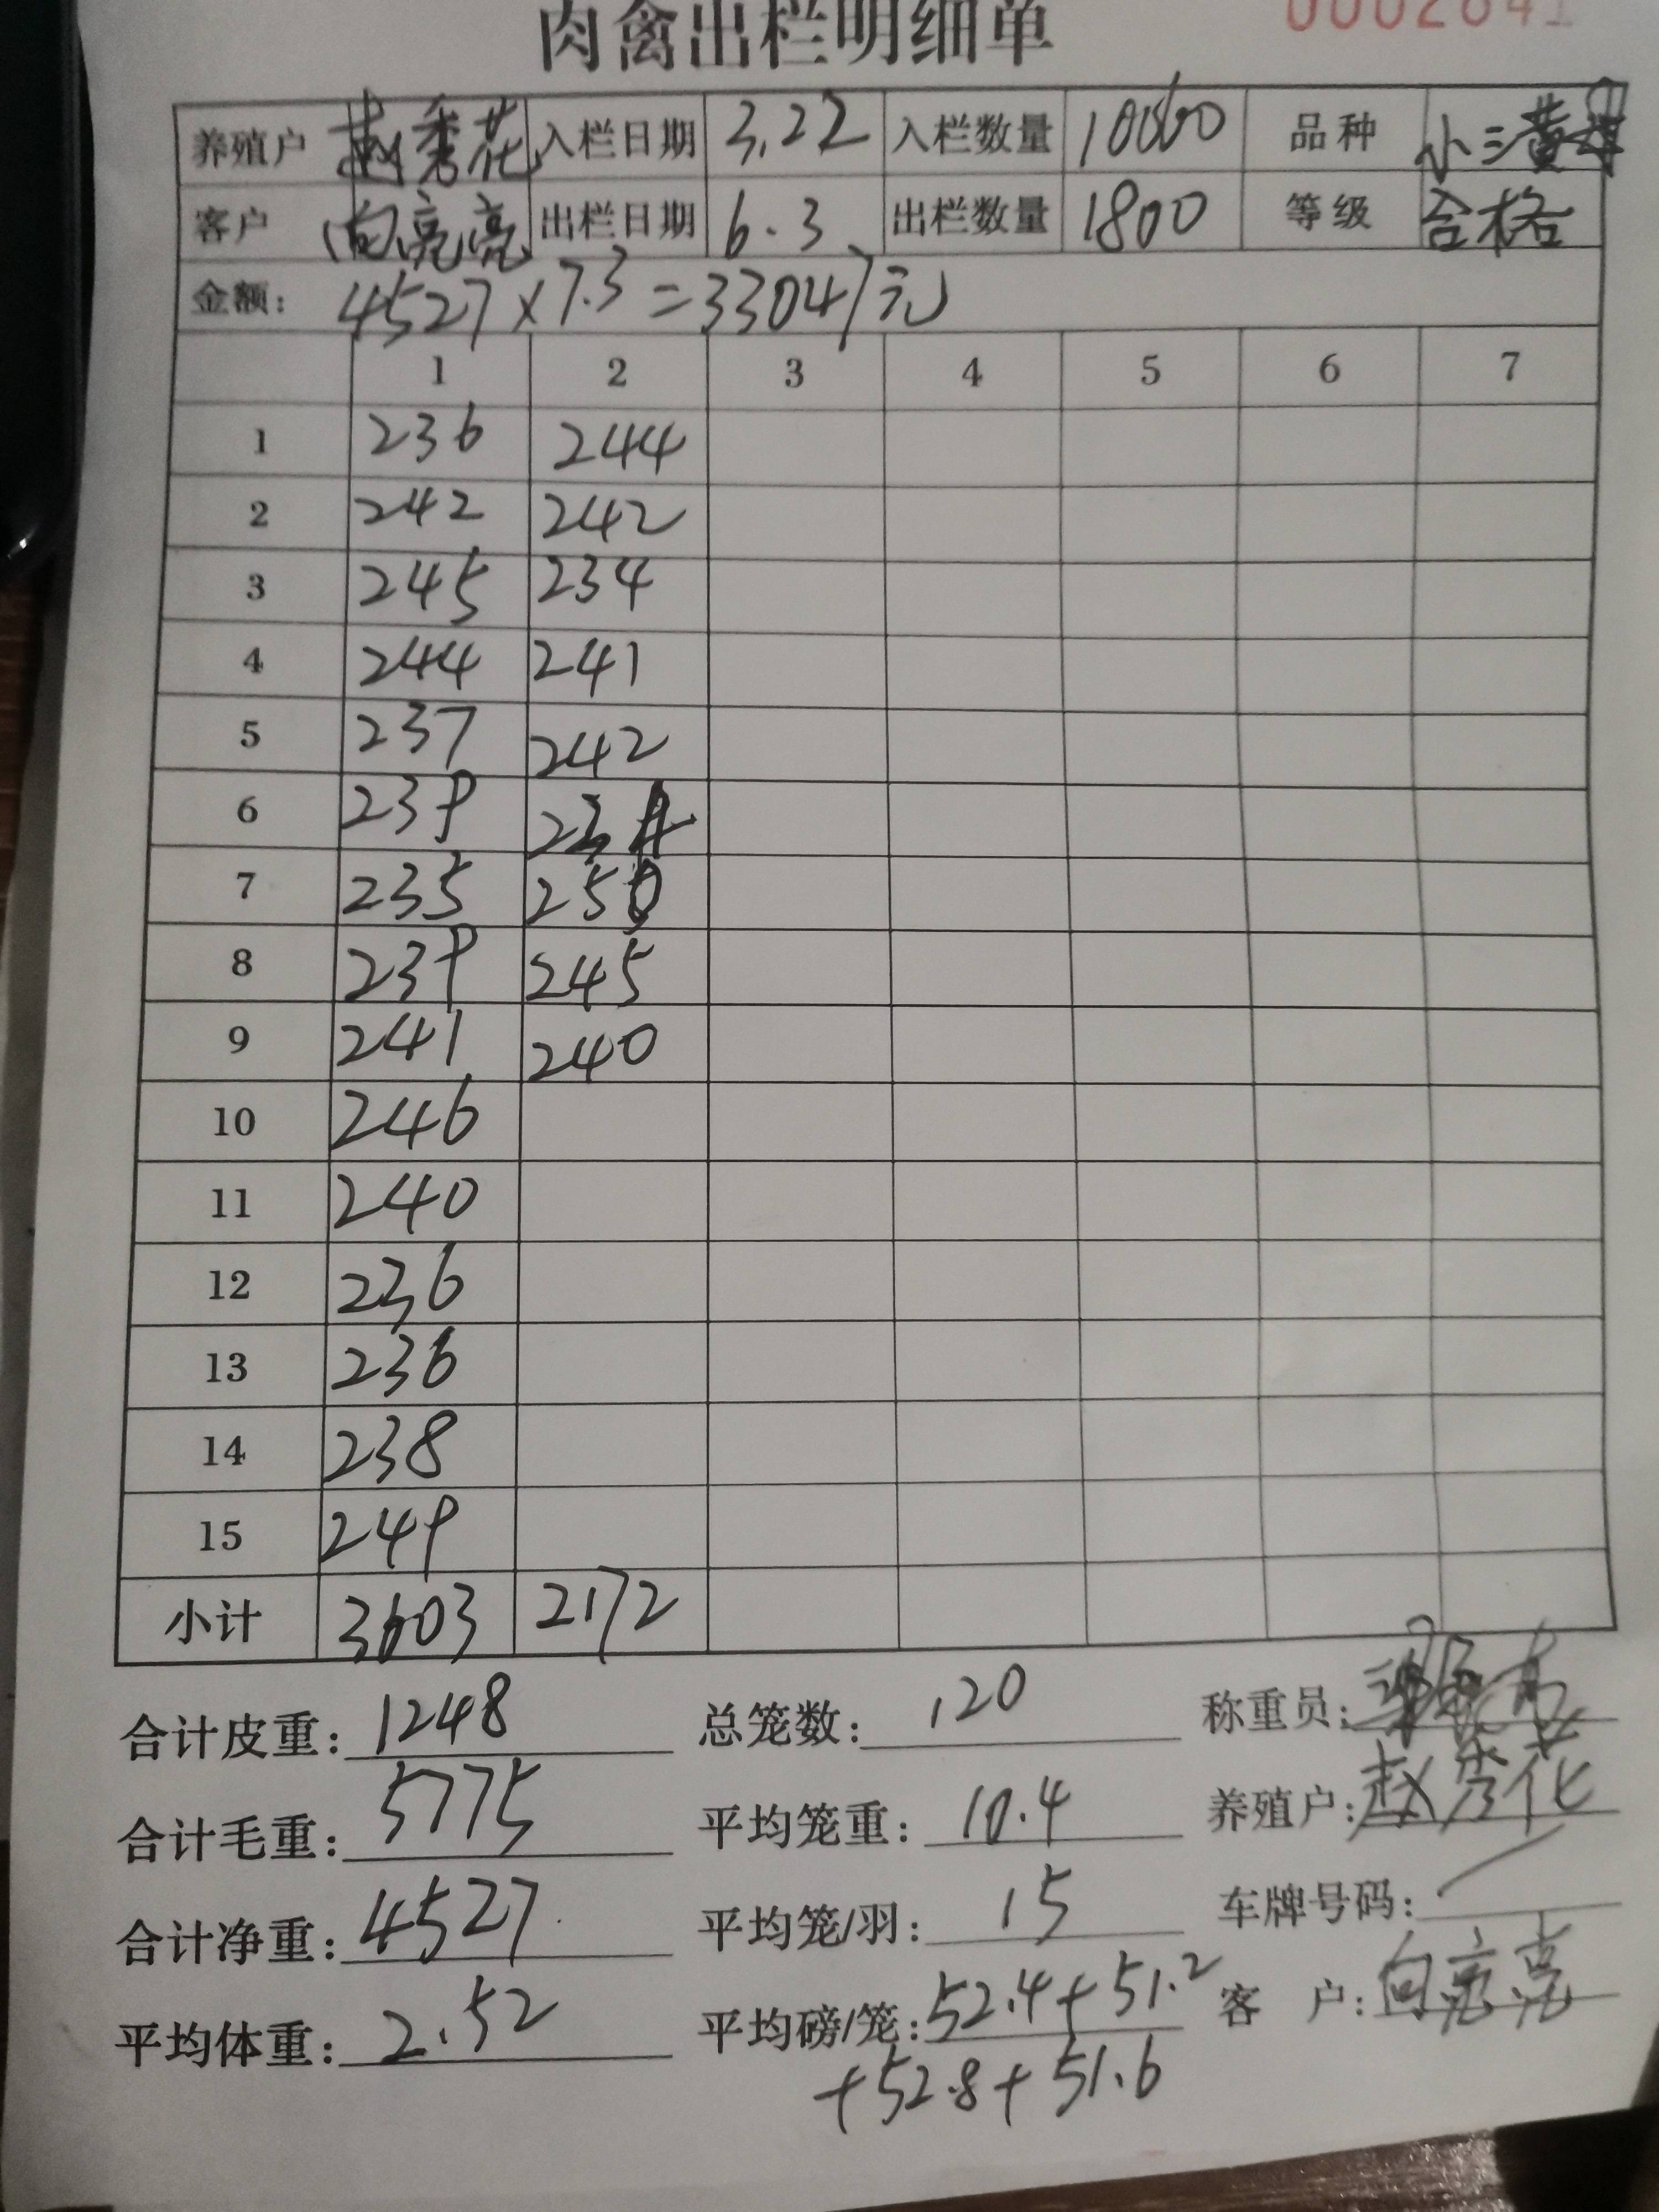 肉禽出栏明细单 0002641
养殖户 赵秀花 入栏日期 3.22 入栏数量 10000 品种 小三黄
客户 向亮亮 出栏日期 6.3 出栏数量 1800 等级 合格
金额: 4527×7.3=33047元
1 2 3 4 5 6 7
1 236 244
2 242 242
3 245 234
4 244 241
5 237 242
6 239 234
7 235 250
8 239 245
9 241 240
10 246
11 240
12 236
13 236
14 238
15 249
小计 3603 2172
合计皮重: 1248 总笼数: 120 称重员:
合计毛重: 5775 平均笼重: 10.4 养殖户: 赵秀花
合计净重: 4527 平均笼/羽: 15 车牌号码: /
平均体重: 2.52 平均磅/笼: 52.4+51.2 客 户: 向亮亮
+52.8+51.6